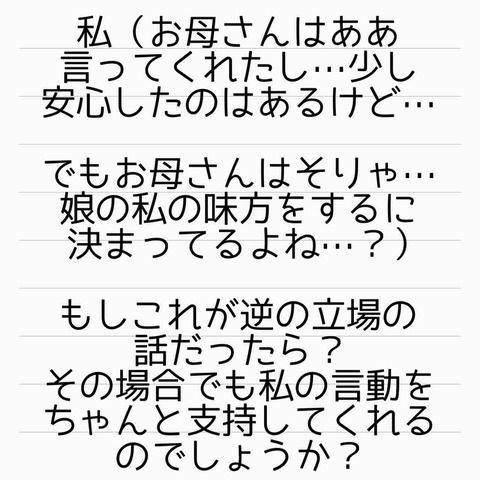 私（お母さんはああ
言ってくれたし…少し
安心したのはあるけど…
でもお母さんはそりゃ…
娘の私の味方をするに
決まってるよね…？）
もしこれが逆の立場の
話だったら？
その場合でも私の言動を
ちゃんと支持してくれる
のでしょうか？